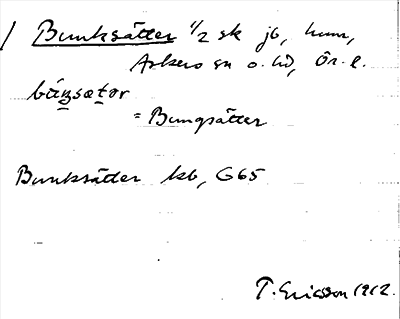 / Bunksätter 1/2 sk jb, hum,
Askers sn o. hd, Ör. l.
búŋsætər
= Bungsätter
Bunksätter kb, G65
T. Ericsson 1912.